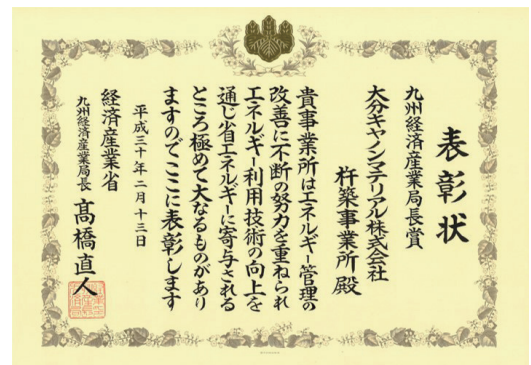 表彰状
九州経済産業局長賞
大分キヤノンマテリアル株式会社
杵築事業所 殿
貴事業所はエネルギー管理の
改善に不断の努力を重ねられ
エネルギー利用技術の向上を
通じ省エネルギーに寄与される
ところ極めて大なるものがあり
ますのでここに表彰します
平成三十年二月十三日
経済産業省
九州経済産業局長 髙橋直人